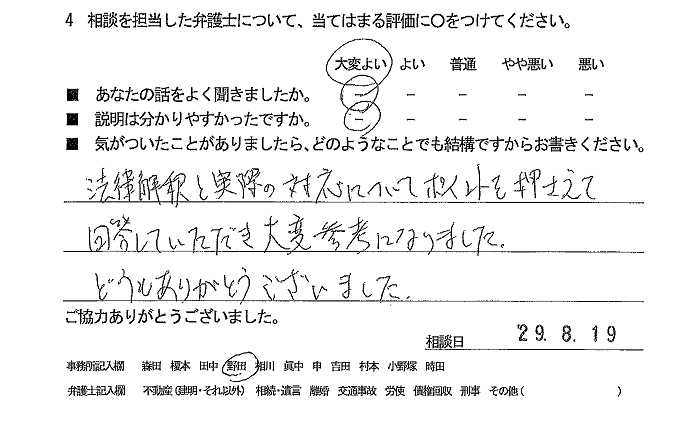 4 相談を担当した弁護士について、当てはまる評価に〇をつけてください。
大変よい よい 普通 やや悪い 悪い
■ あなたの話をよく聞きましたか。 － － － － －
■ 説明は分かりやすかったですか。 － － － － －
■ 気がついたことがありましたら、どのようなことでも結構ですからお書きください。
法律解釈と実際の対応についてポイントを押さえて
回答していただき大変参考になりました。
どうもありがとうございました。
ご協力ありがとうございました。
相談日 '29.8.19
事務所記入欄 森田 榎本 田中 野田 相川 眞中 申 吉田 村本 小野塚 時田
弁護士記入欄 不動産（建明・それ以外） 相続・遺言 離婚 交通事故 労使 債権回収 刑事 その他（ ）